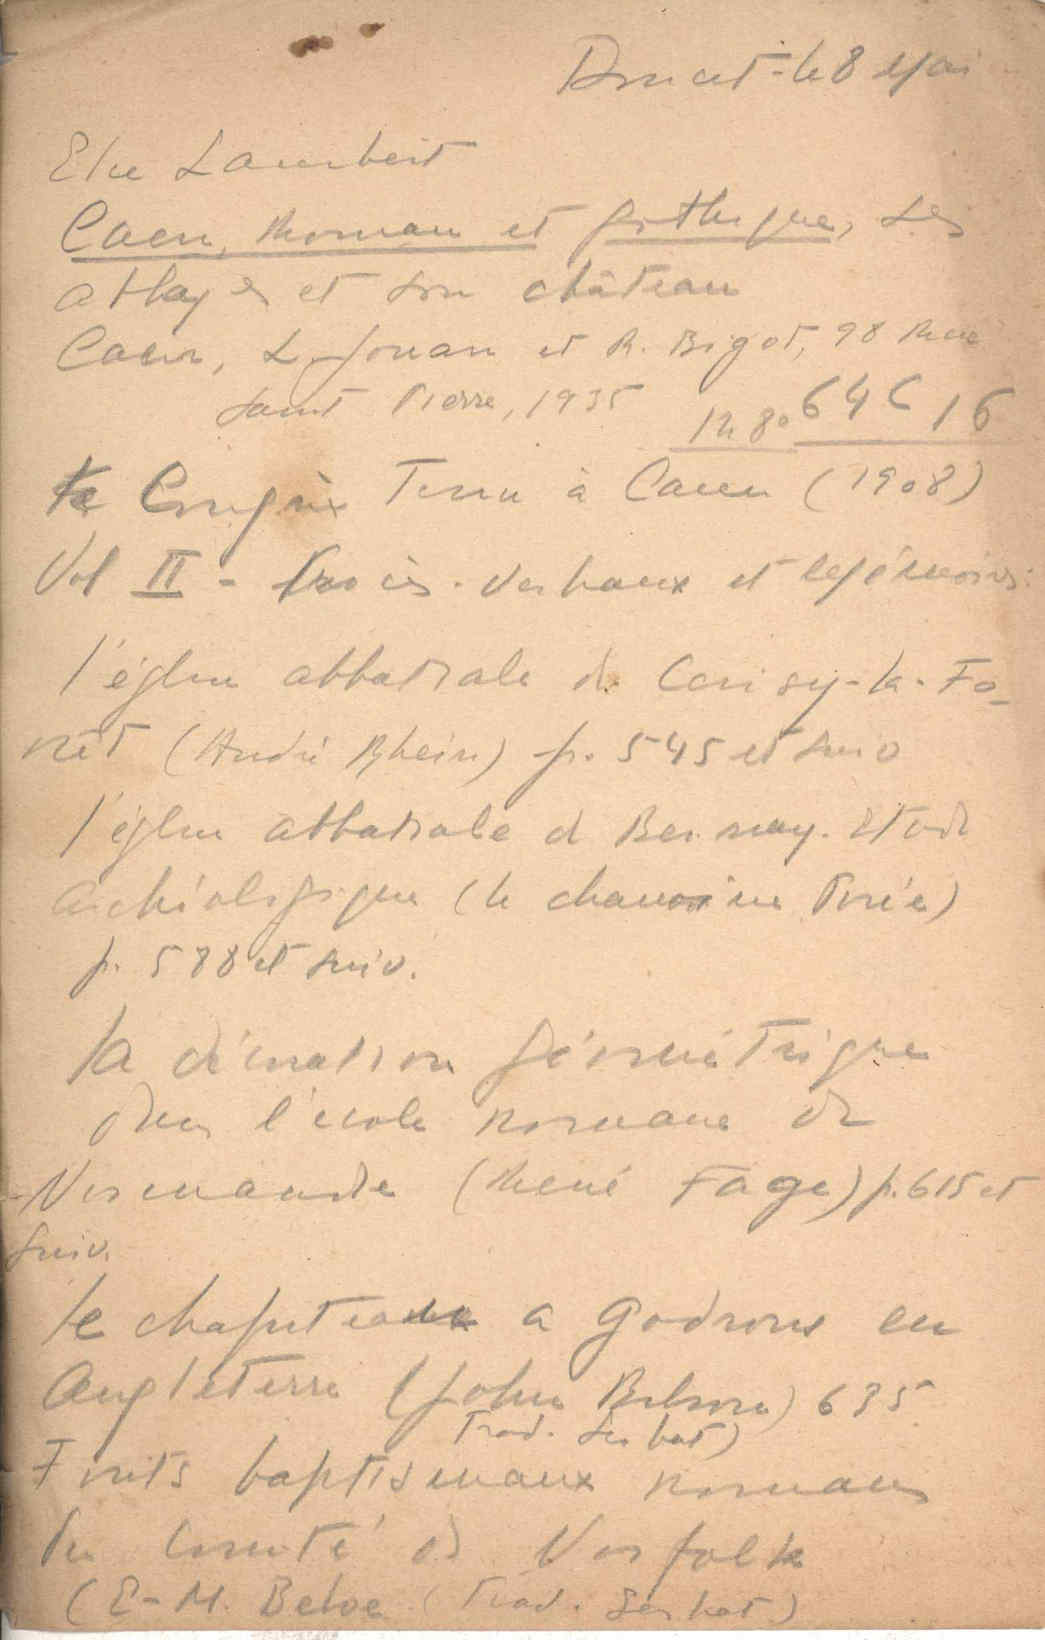 Doucet - le 8 Mai
Elie Lambert
Caen, Roman et gothique, Ses
abbayes et son château
Caen, L. Jouan et R. Bigot, 98 Rue
Saint Pierre, 1935
12 8° 64 C 16
Le Congrès Tenu à Caen (1908)
Vol II - Procès-Verbaux et Mémoires:
l'église abbatiale de Cerisy-la-Fo-
rêt (André Rhein) p. 545 et suiv
l'église abbatiale de Bernay. Etude
archéologique (le chanoine Porée)
p. 588 et suiv.
la décoration géométrique
dans l'école romane de
Normandie (René Fage) p. 615 et
suiv.
le chapiteau a godrons en
Angleterre (John Bilson) 635
Trad. Serbat)
Fonts baptismaux romans
du Comté de Norfolk
(E-M. Beloe (Trad. Serbat)